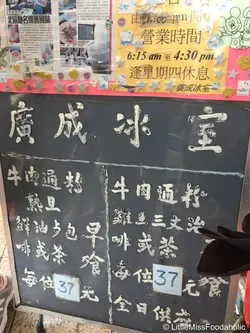 1:00 p.m
營業時間
6:15 am 至 4:30 pm
逢星期四休息
廣成冰室
廣成冰室
牛肉通粉
熱旦
油包
啡或茶
早餐
每位37元
牛肉通粉
三文治
啡或茶
每位37元
餐
全日供應
©LittleMissFoodaholic